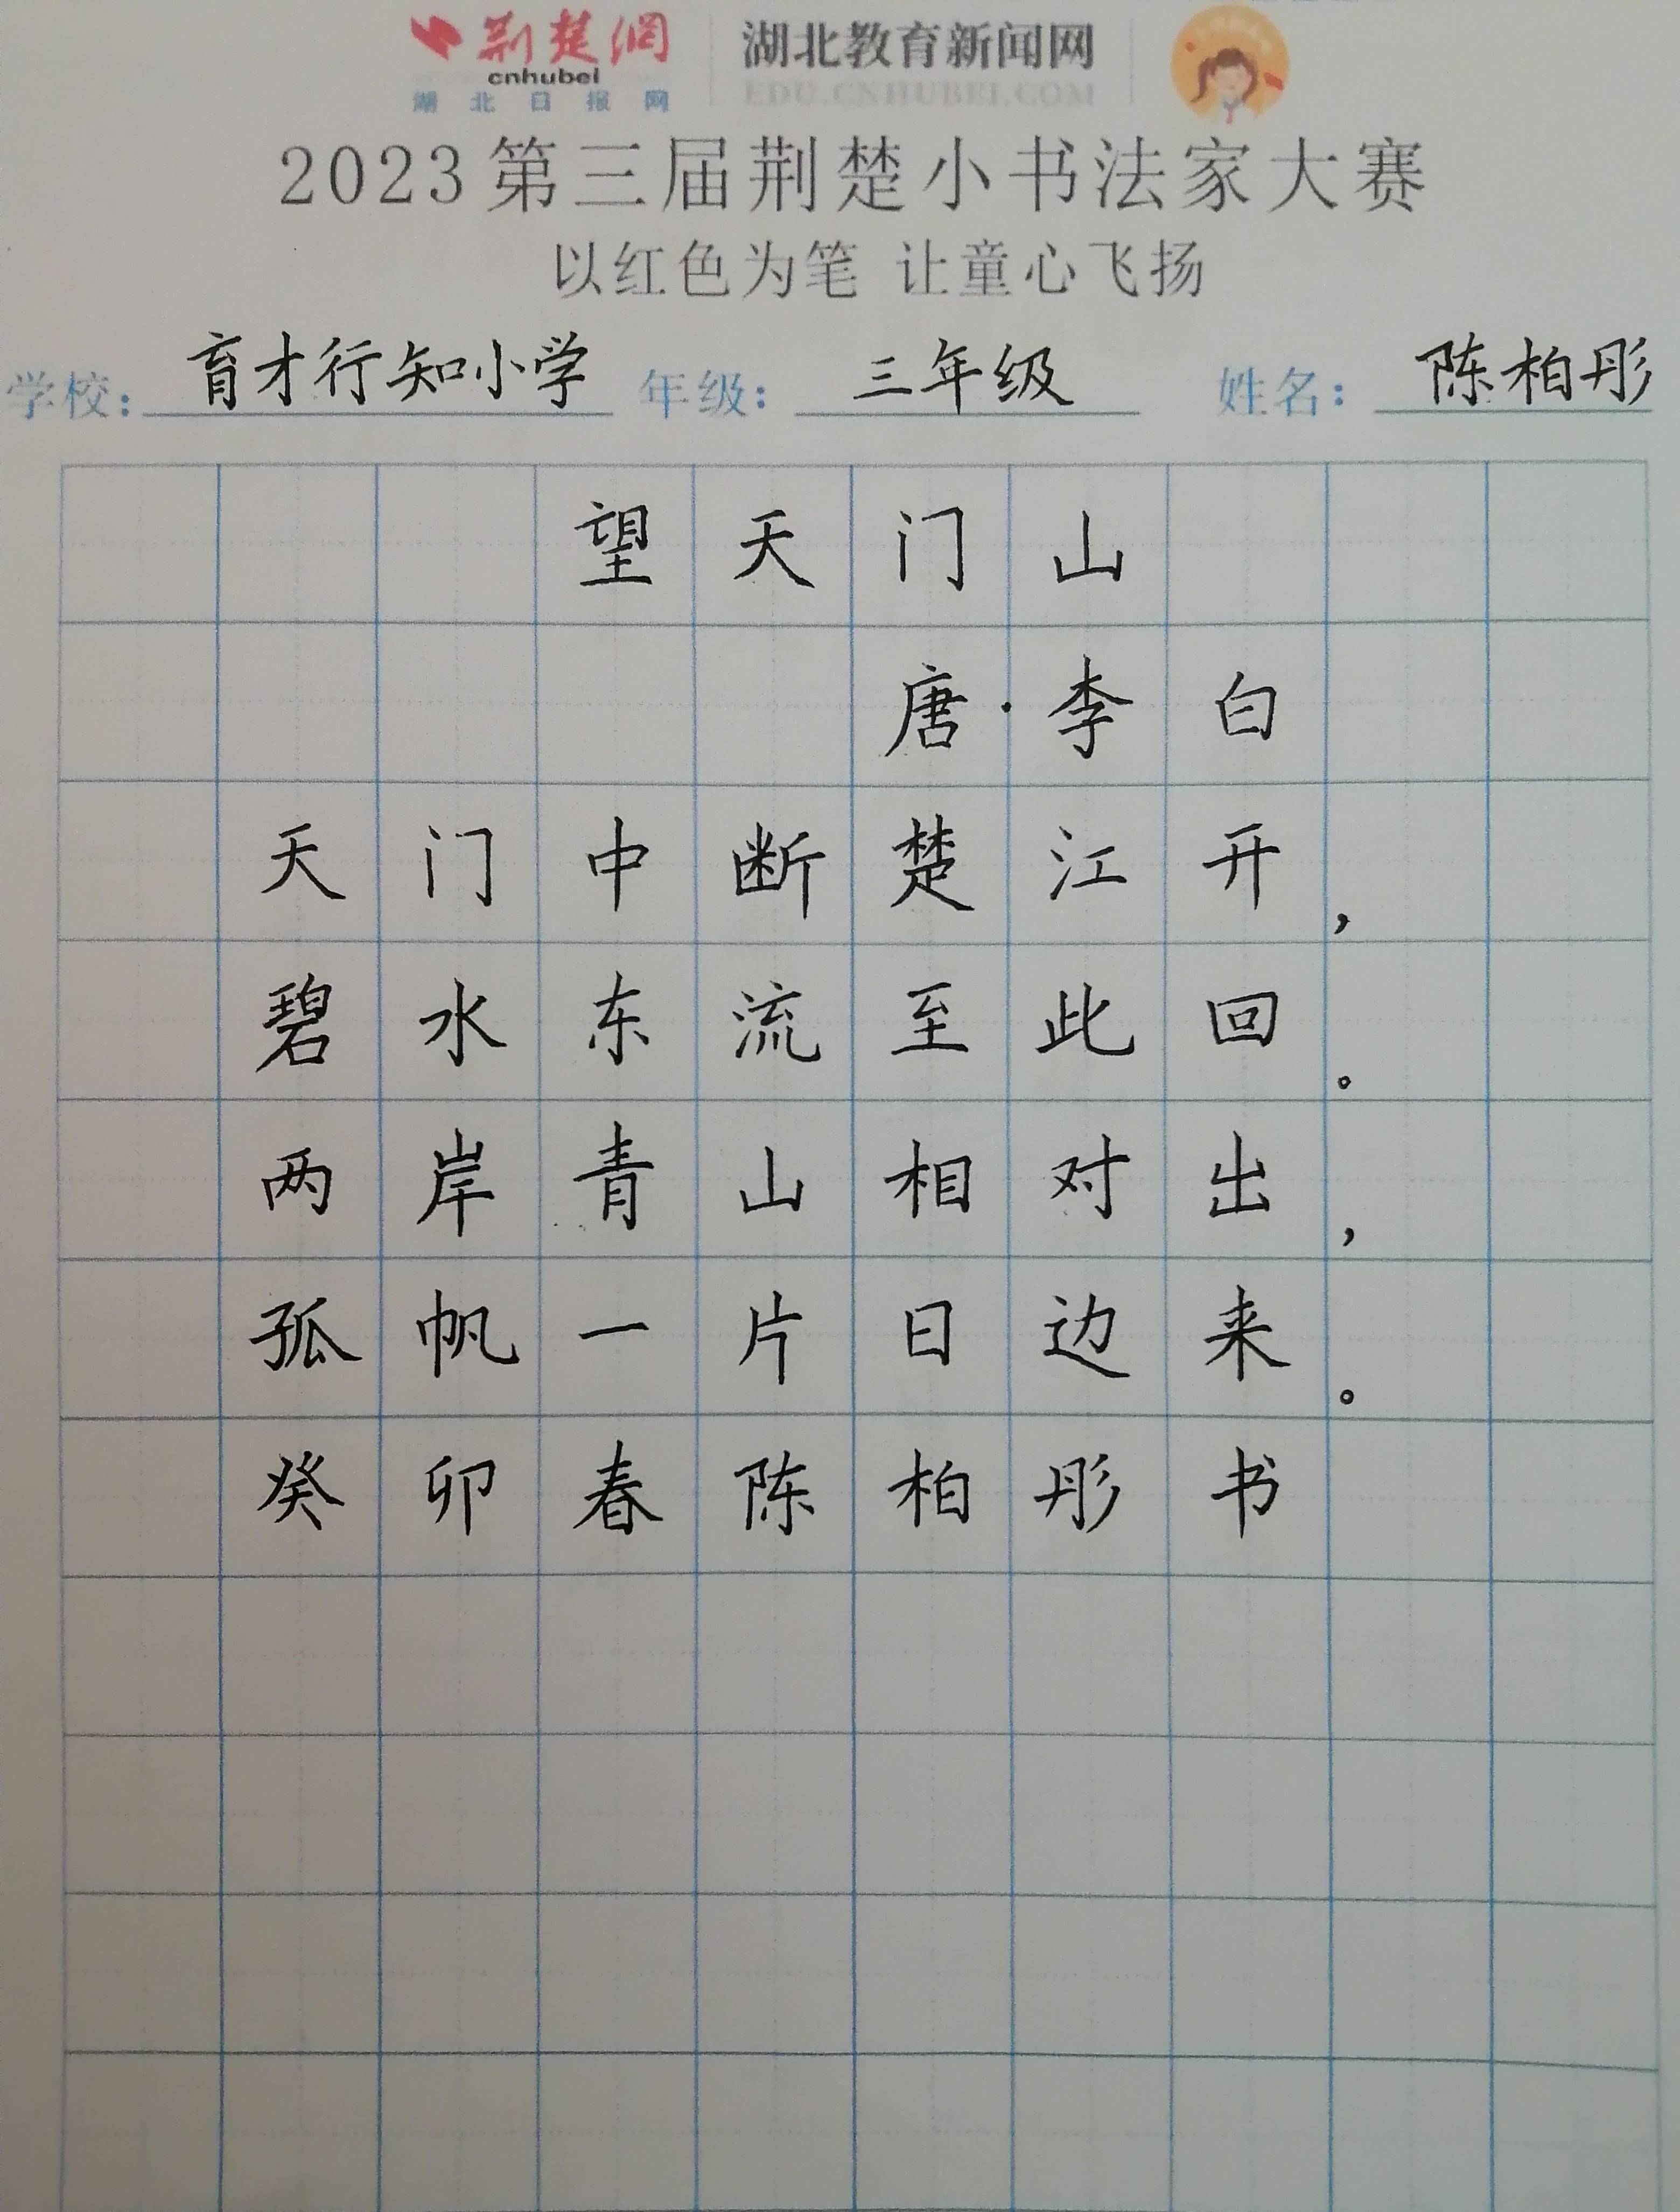 荆楚网
cnhubei
湖北日报网
湖北教育新闻网
EDU.CNHUBEI.COM
2023第三届荆楚小书法家大赛
以红色为笔 让童心飞扬
学校：育才行知小学 年级：三年级 姓名：陈柏彤
望天门山
唐·李白
天门中断楚江开，
碧水东流至此回。
两岸青山相对出，
孤帆一片日边来。
癸卯春陈柏彤书